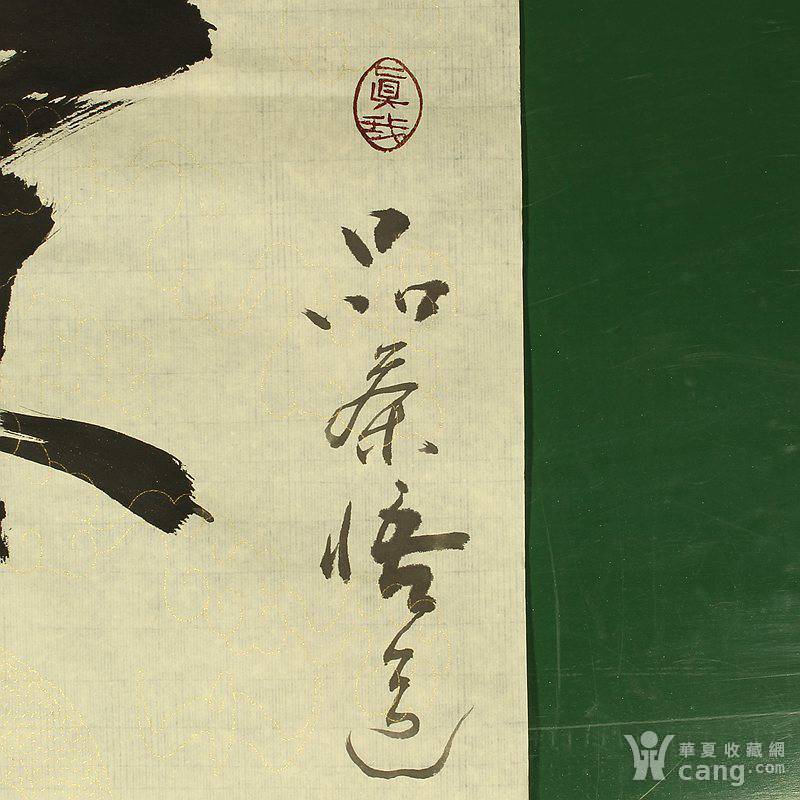 真我
品茶悟道
華夏收藏網
cang.com